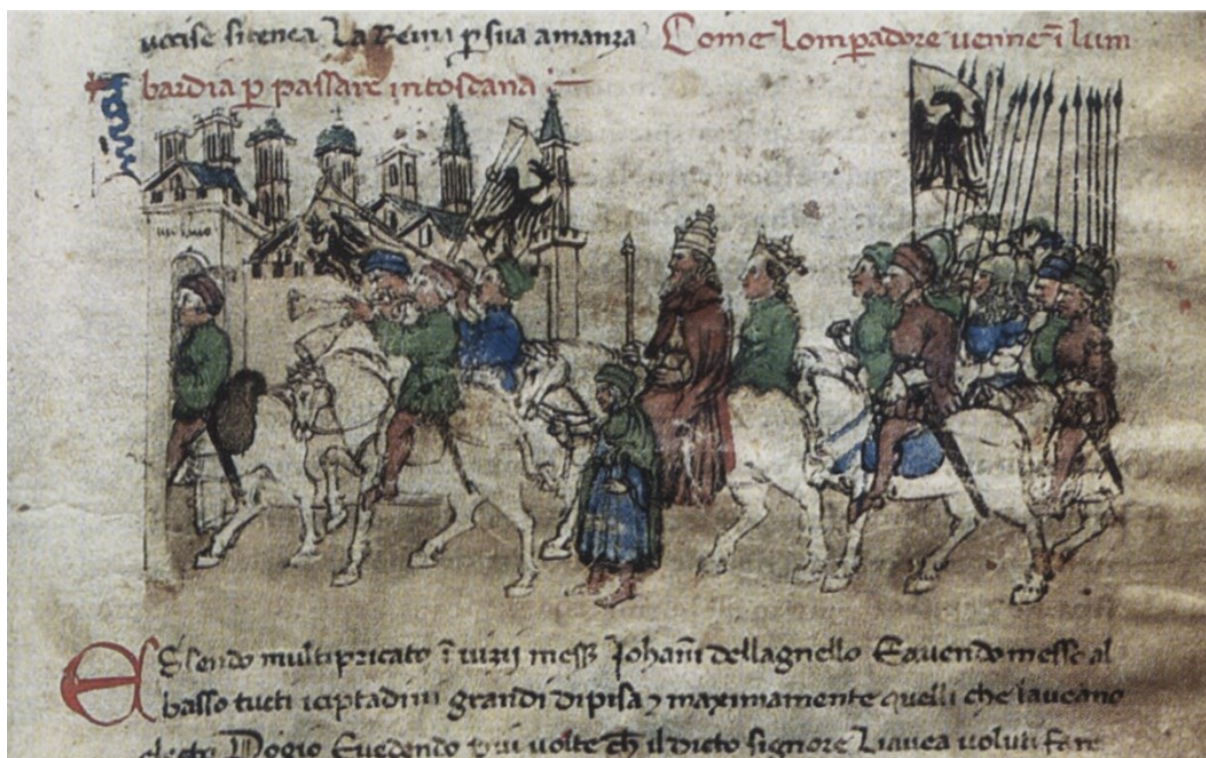 uccise sitenea La Reina p sua amanza Come lompadore uenne ĩ lum
bardia p passare intoscana
Essendo multipricato ĩ uizij mess Johanñ dellagnello Eauendo messe al
basso tucti iciptadini grandi dipisa ⁊ maximamente quelli che laueano
Dogio Euedendo piu uolte cħ il dicto signore Liauea uoluti fare